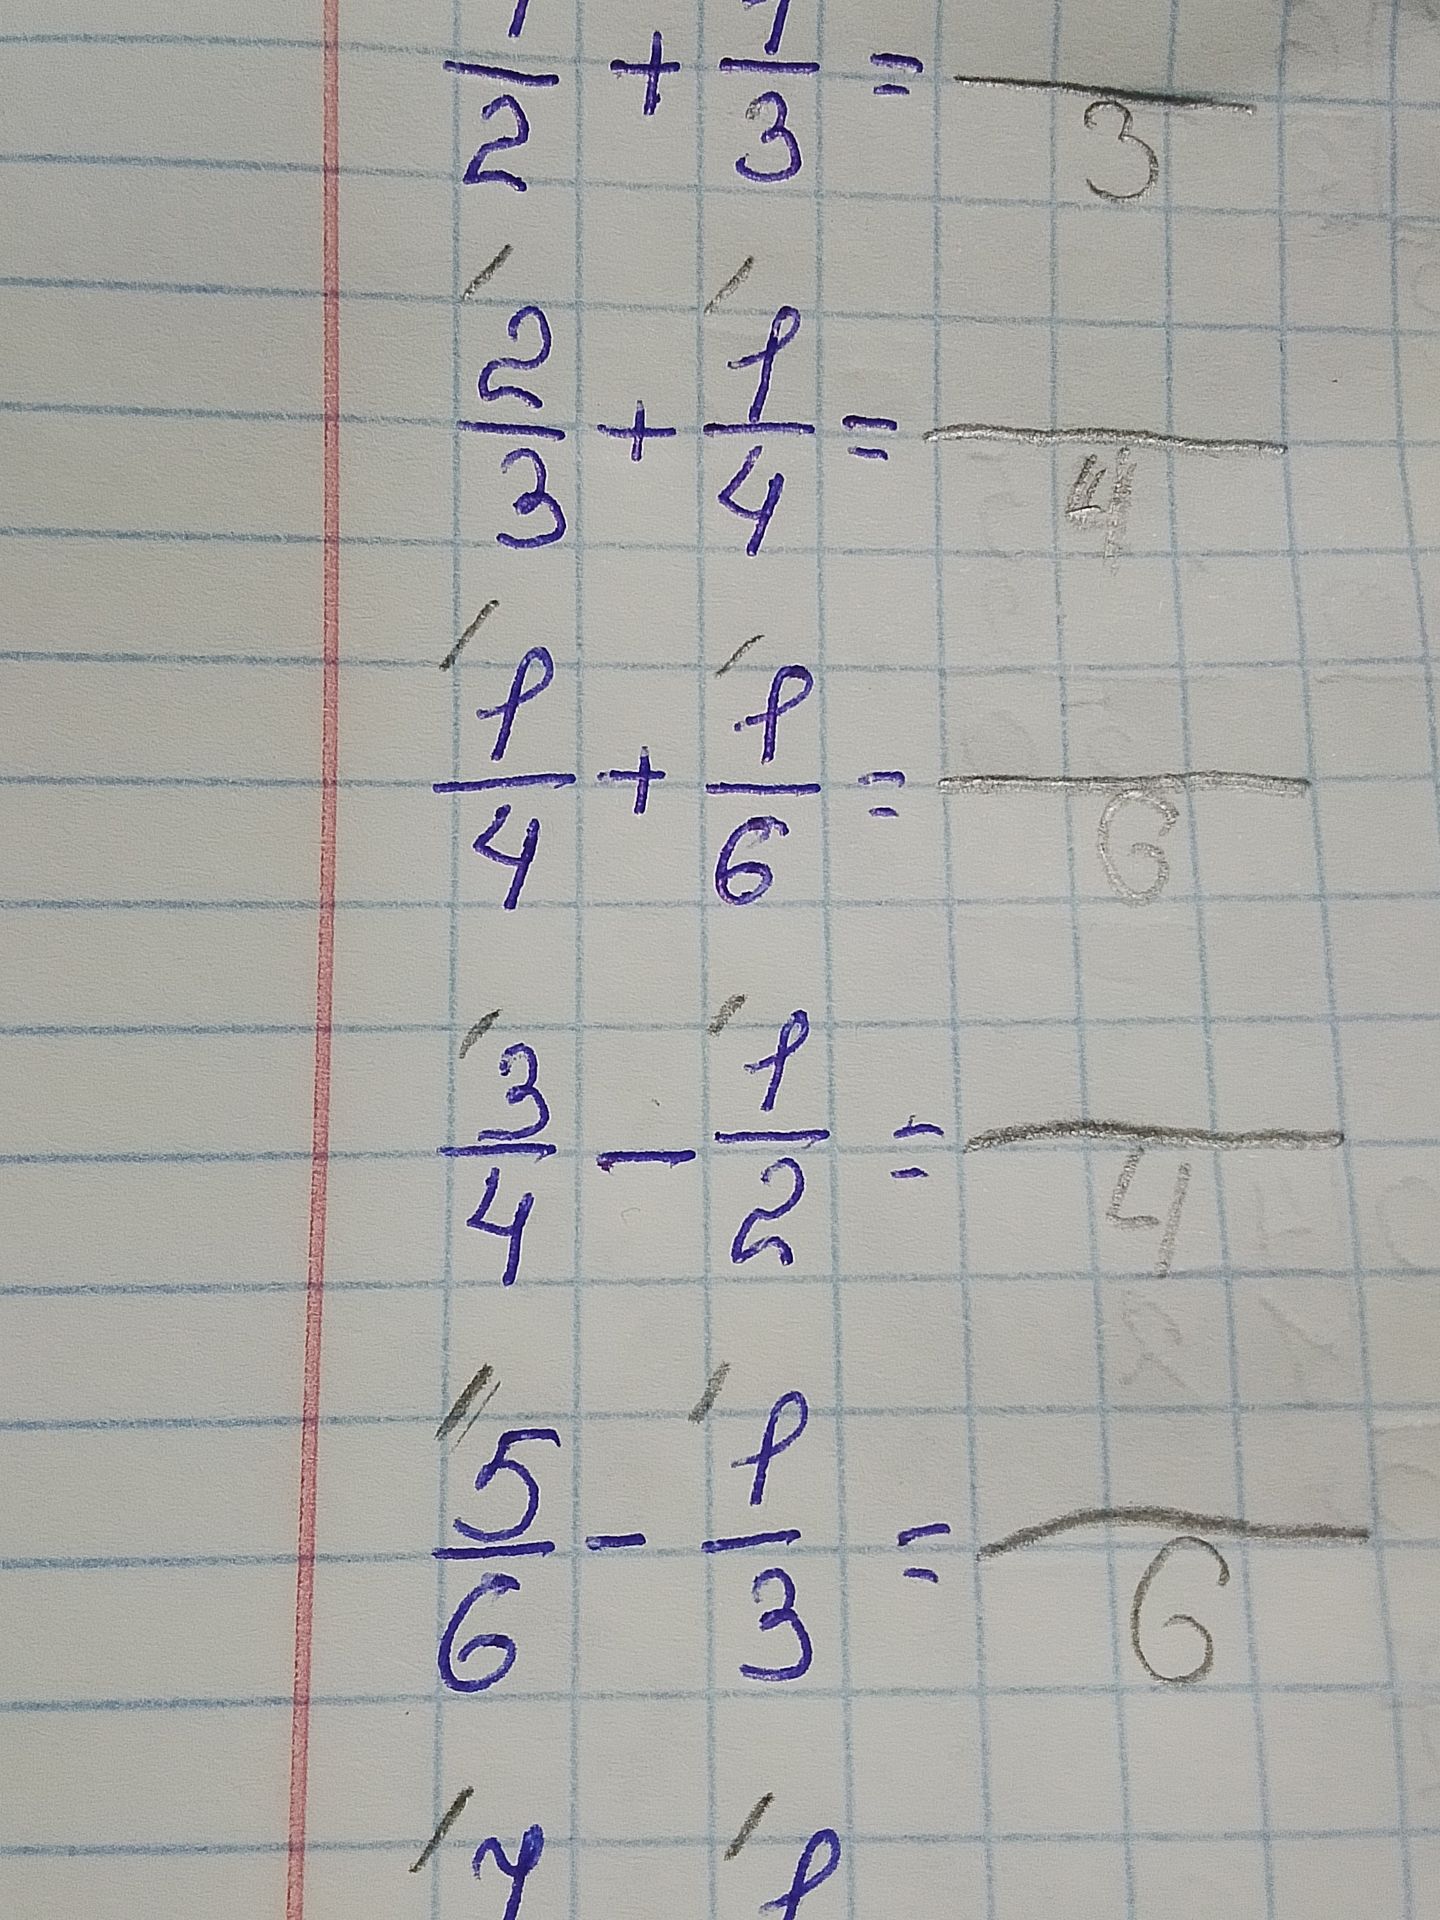 1/2 + 1/3 = /3
2/3 + 1/4 = /4
1/4 + 1/6 = /6
3/4 - 1/2 = /4
5/6 - 1/3 = /6